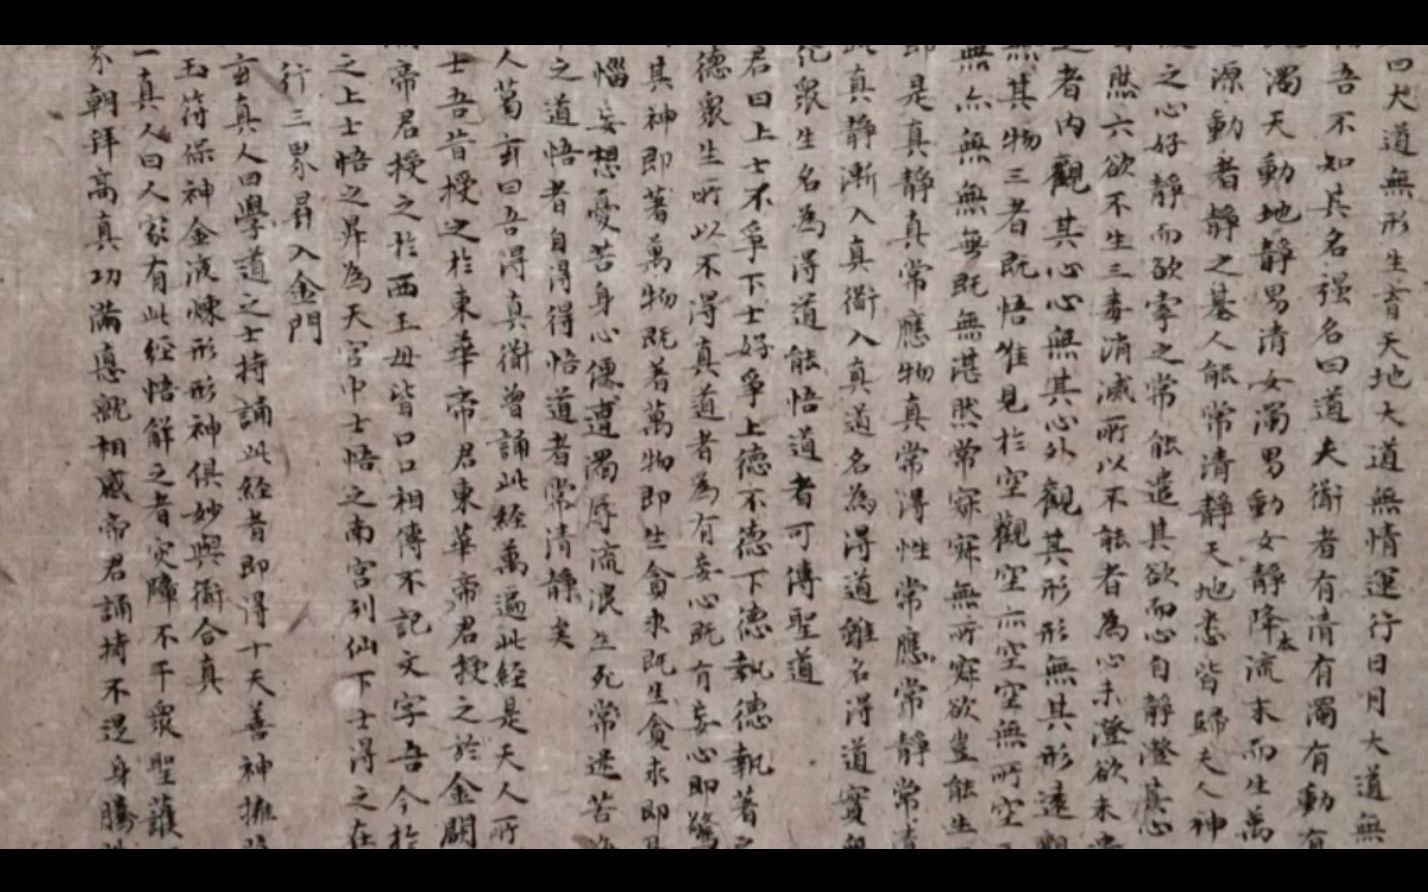 曰大道無形生育天地大道無情運行日月大道無
吾不知其名强名曰道夫衜者有清有濁有動有
濁天動地静男清女濁男動女静降本流末而生萬
源動者静之基人能常清静天地悉皆歸夫人神
之心好静而欲牽之常能遣其欲而心自静澄其心
然六欲不生三毒消滅所以不能者為心未澄欲未
者内觀其心心無其心外觀其形形無其形遠觀
無其物三者既悟唯見於空觀空亦空空無所空
無亦無無無既無湛然常寂寂無所寂欲豈能生
即是真静真常應物真常得性常應常静常清
真静漸入真衜入真道名為得道雖名得道實無
化衆生名為得道能悟道者可傳聖道
君曰上士不爭下士好爭上德不德下德執德執著之
德衆生所以不得真道者為有妄心既有妄心即驚
其神即著萬物既著萬物即生貪求既生貪求即
惱妄想憂苦身心便遭濁辱流浪生死常迷苦
之道悟者自得得悟道者常清静矣
人葛玄曰吾得真衜曾誦此經萬遍此經是天人所
士吾昔授之於東華帝君東華帝君授之於金闕
帝君授之於西王母皆口口相傳不記文字吾今於
之上士悟之昇為天官中士悟之南宮列仙下士得之在
行三界昇入金門
玄真人曰學道之士持誦此經者即得十天善神擁
玉符保神金液煉形形神俱妙與衜合真
一真人曰人家有此經悟解之者灾障不干衆聖護
界朝拜高真功滿惪就相感帝君誦持不退身騰